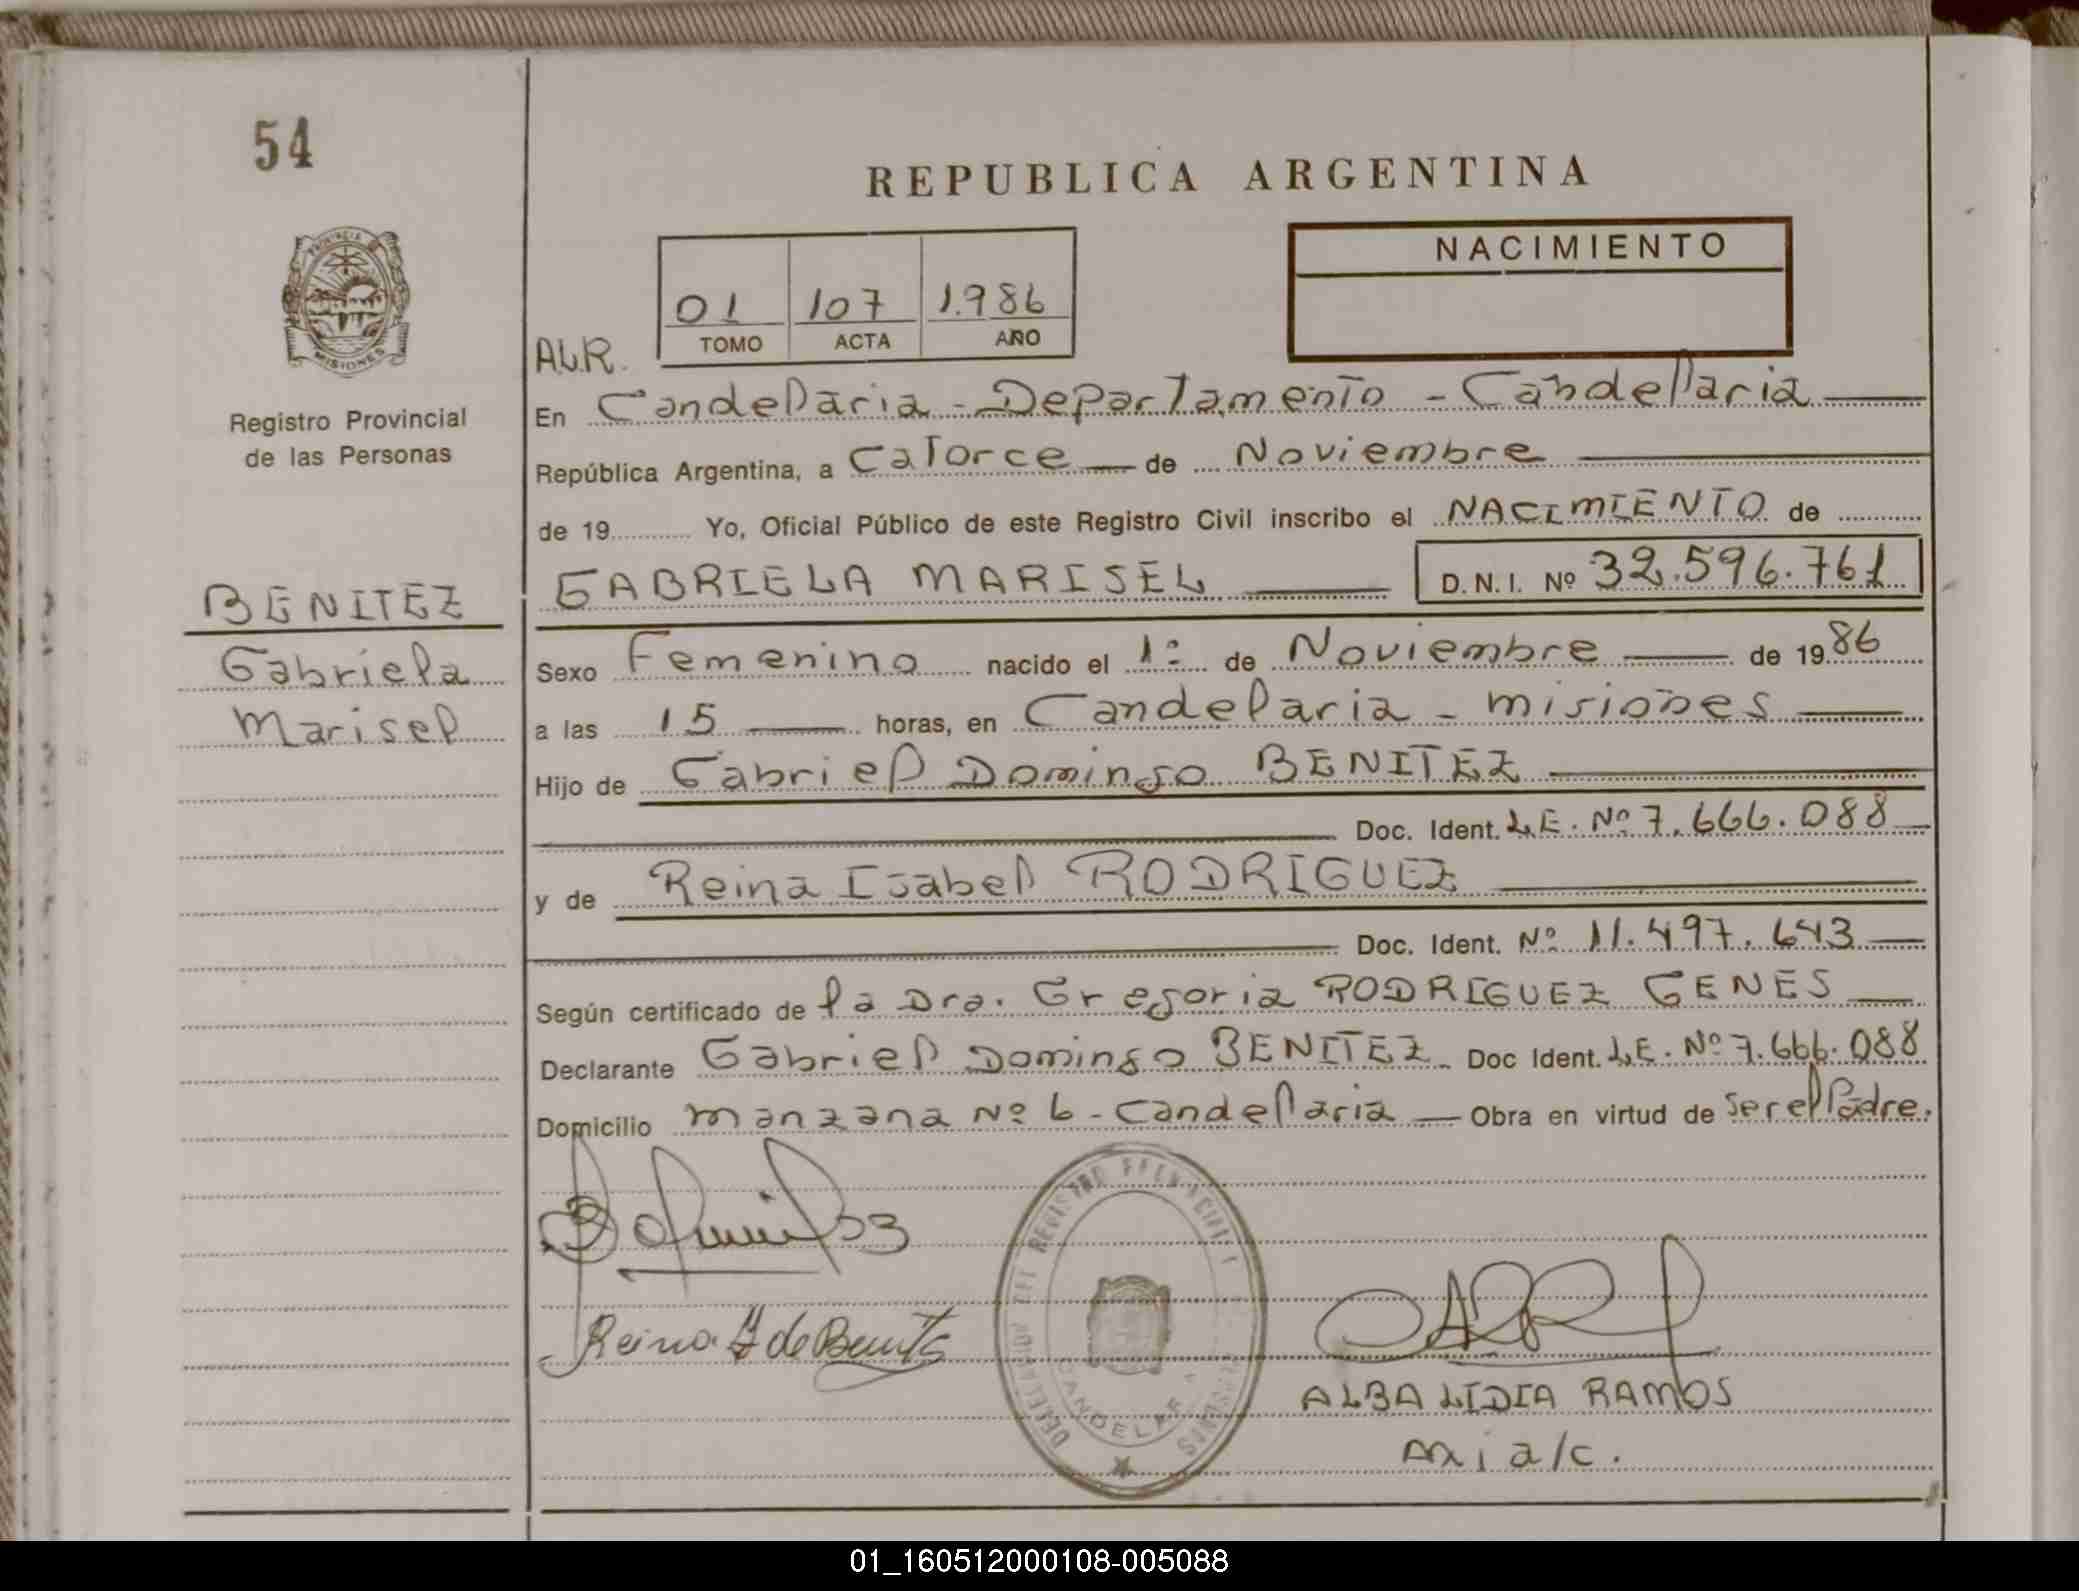 54
REPUBLICA ARGENTINA
PROVINCIA
MISIONES
Registro Provincial
de las Personas
01 107 1.986
TOMO ACTA AÑO
NACIMIENTO
A.L.R.
En Candelaria - Departamento - Candelaria
República Argentina, a Catorce de Noviembre
de 19 Yo, Oficial Público de este Registro Civil inscribo el NACIMIENTO de
GABRIELA MARISEL D.N.I. Nº 32.596.761
BENITEZ
Gabriela
Marisel
Sexo Femenino nacido el 1º de Noviembre de 1986
a las 15 horas, en Candelaria - misiones
Hijo de Gabriel Domingo BENITEZ
Doc. Ident. L.E. Nº 7.666.088
y de Reina Isabel RODRIGUEZ
Doc. Ident. Nº 11.497.643
Según certificado de la Dra. Gregoria RODRIGUEZ GENES
Declarante Gabriel Domingo BENITEZ Doc Ident. L.E. Nº 7.666.088
Domicilio manzana Nº 6 - Candelaria Obra en virtud de ser el Padre.
Reina de Benitez
ALBA LIDIA RAMOS
a/c.
01_160512000108-005088